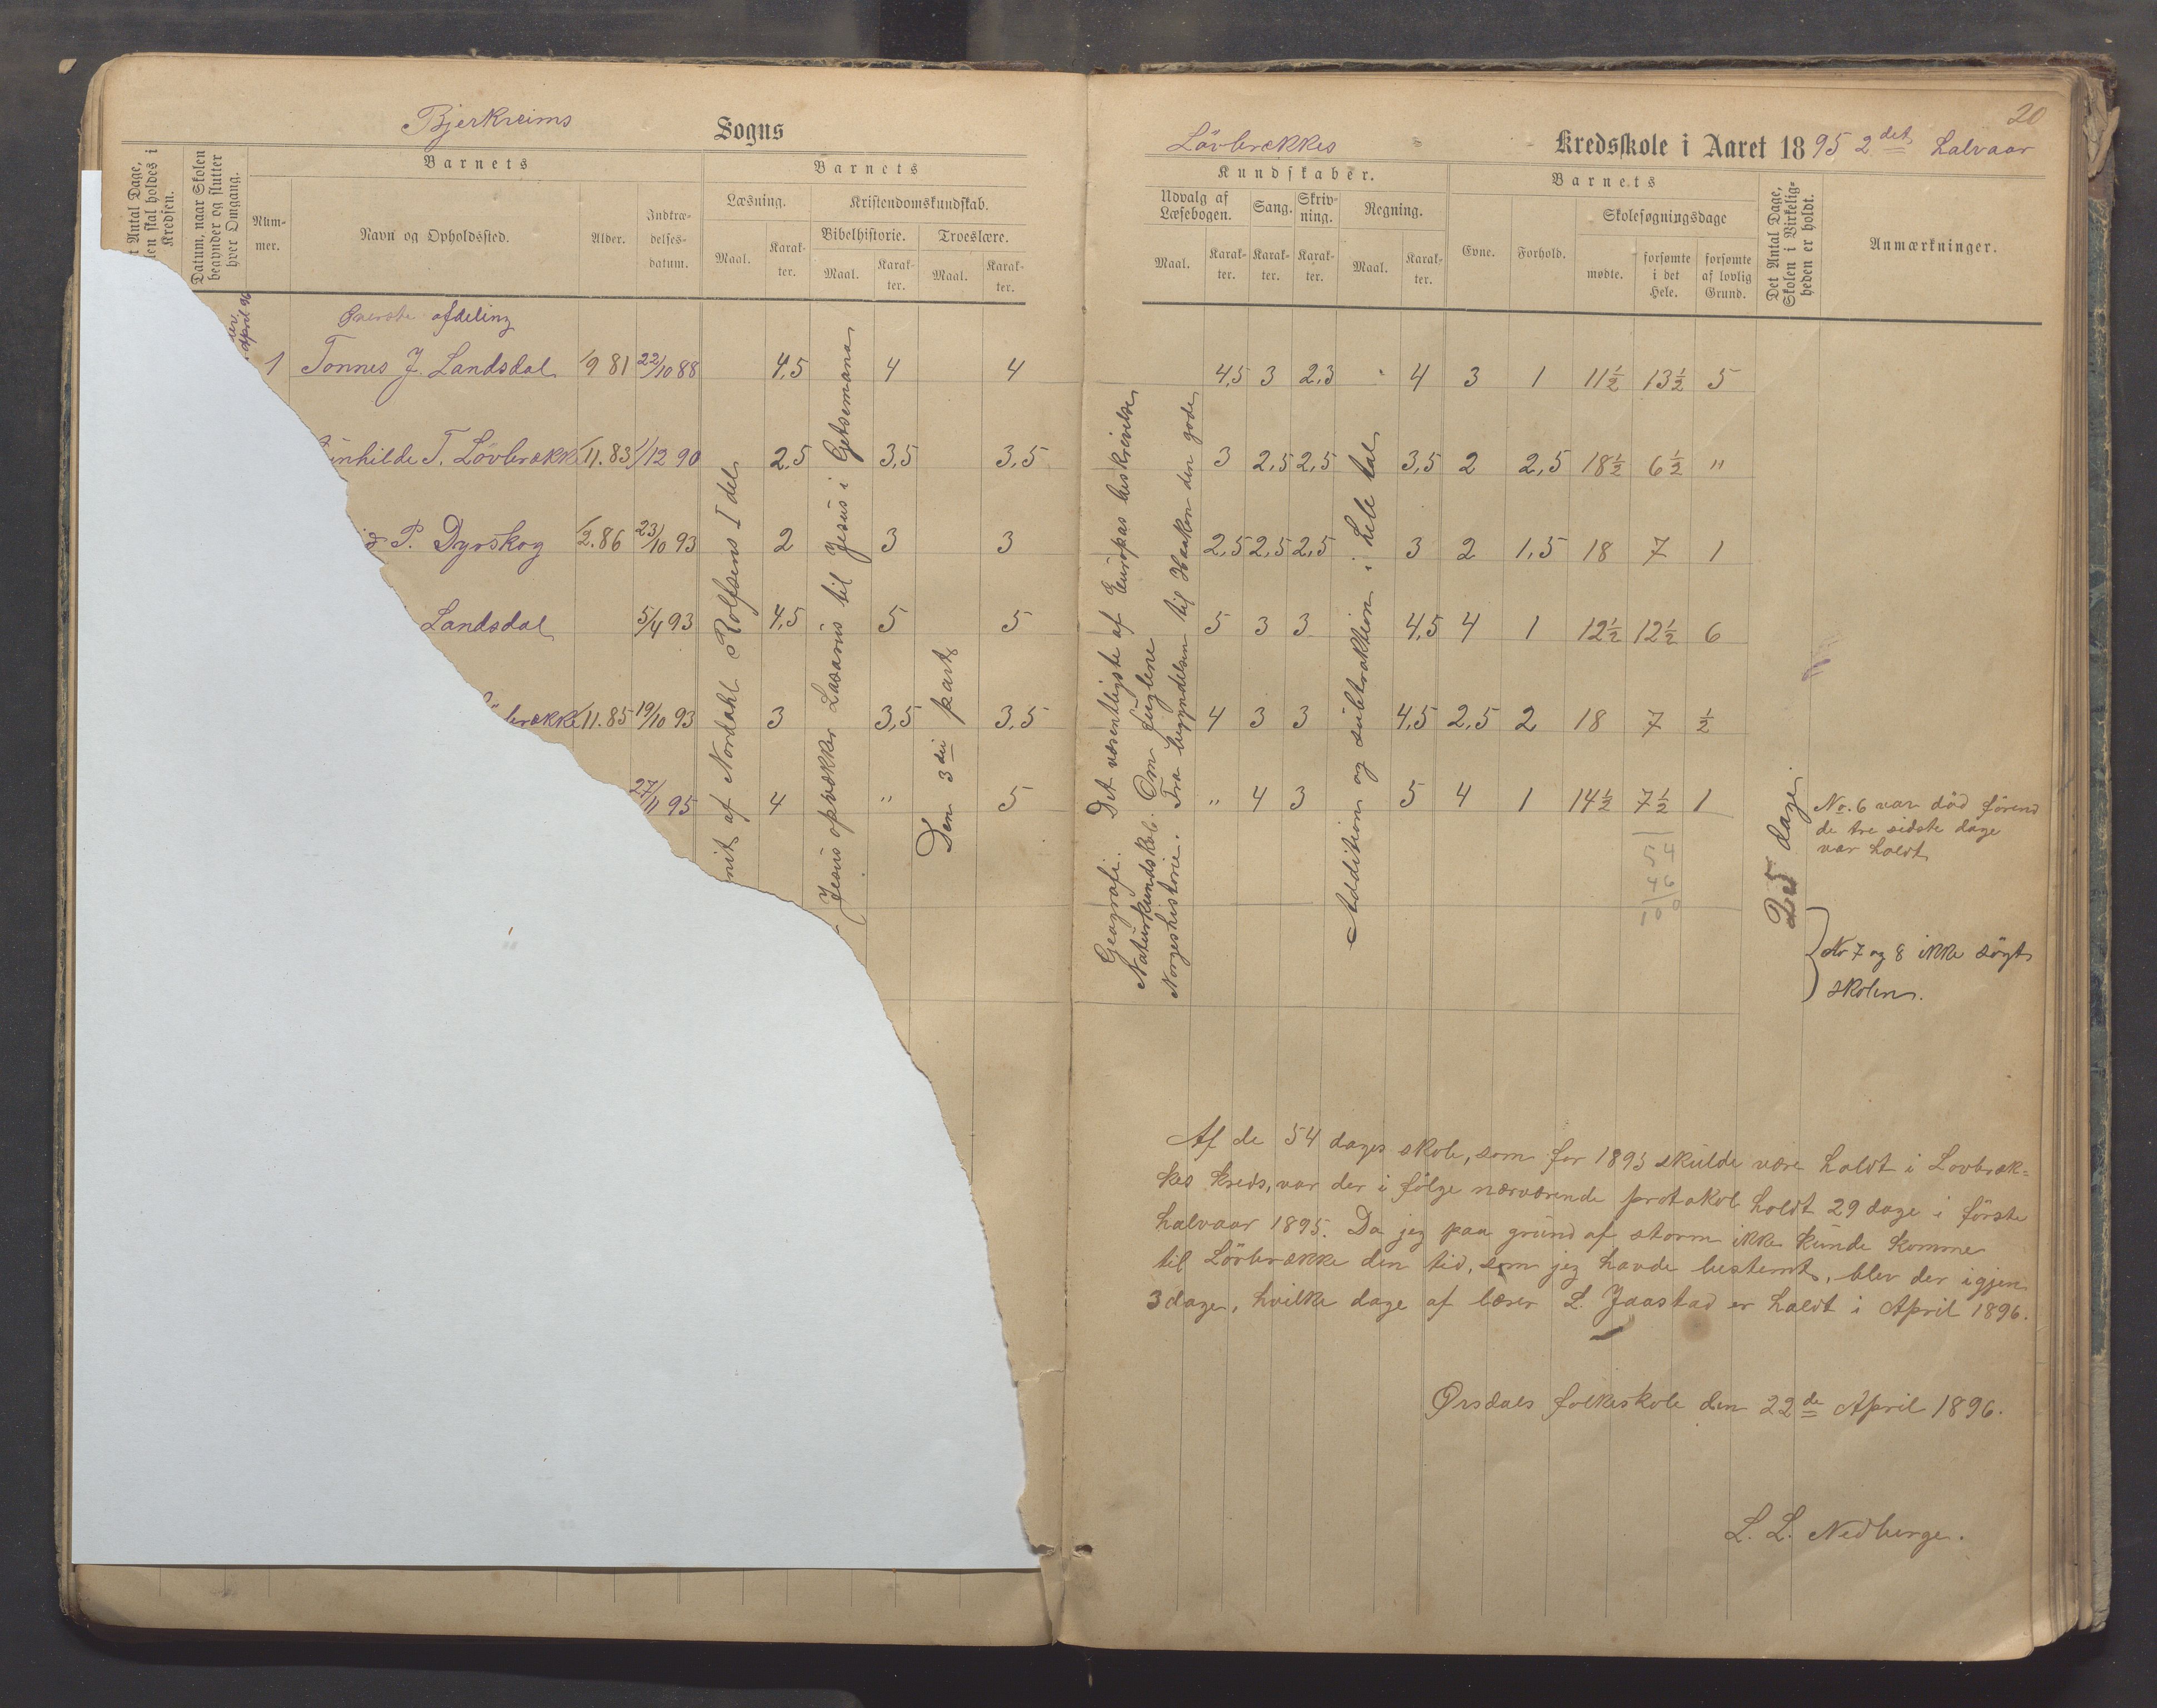 Bjerkreims Sogns
Antal Dage,
len skal holdes i
Kredsen.
Datum, naar Skolen
begynder og slutter
hver Omgang.
Barnets
Num-
mer.
Navn og Opholdssted.
Alder.
Indtræ-
delses-
datum.
Barnets
Læsning.
Maal.
Karak-
ter.
Kristendomskundskab.
Bibelhistorie.
Maal.
Karak-
ter.
Troeslære.
Maal.
Karak-
ter.
april 96
Øverste afdeling
1 Tønnes J. Landsdal 1/9 81 22/10 88 4,5 4 4
inhilde T. Lövbrække 1/11.83 1/12 90 2,5 3,5 3,5
P. Dyrskog 1/2.86 23/10 93 2 3 3
Landsdal 5/4 93 4,5 5 5
brække 1/11.85 19/10 93 3 3,5 3,5
27/11 95 4 " 5
nit af Nordahl Rolfsens I del
Jesus opvækker Lasarus til Jesus i Getsemana
Den 3die part
20
Lövbrækkes Kredsskole i Aaret 1895 2det halvaar
Kundskaber.
Udvalg af
Læsebogen.
Maal.
Karak-
ter.
Sang.
Karak-
ter.
Skriv-
ning.
Karak-
ter.
Regning.
Maal.
Karak-
ter.
Barnets
Evne.
Forhold.
Skolesøgningsdage
mødte.
forsømte
i det
Hele.
forsømte
af lovlig
Grund.
Det Antal Dage,
Skolen i Virkelig-
heden er holdt.
Anmærkninger.
4,5 3 2,3 4 3 1 11½ 13½ 5
3 2,5 2,5 3,5 2 2,5 18½ 6½ "
2,5 2,5 2,5 3 2 1,5 18 7 1
5 3 3 4,5 4 1 12½ 12½ 6
4 3 3 4,5 2,5 2 18 7 ½
" 4 3 5 4 1 14½ 7½ 1
Geografi. Det væsentligste af Europas beskrivelse
Naturkundskab. Om fuglene
Norgeshistorie. Fra begyndelsen til Haakon den gode
Addition og subtraktion i hele tal
54
46
100
25 dage.
No. 6 var död förend
de tre sidste dage
var holdt
No 7 og 8 ikke sögt
skolen.
Af de 54 dages skole, som for 1895 skulde være holdt i Lovbræk=
kes kreds, var der i fölge nærværende protokol holdt 29 dage i förste
halvaar 1895. Da jeg paa grund af storm ikke kunde komme
til Lövbrække den tid, som jeg havde bestemt, blev der igjen
3 dage, hvilke dage af lærer L. Jaastad er holdt i April 1896.
Ørsdals folkeskole den 22de April 1896.
L. L. Nedberge.